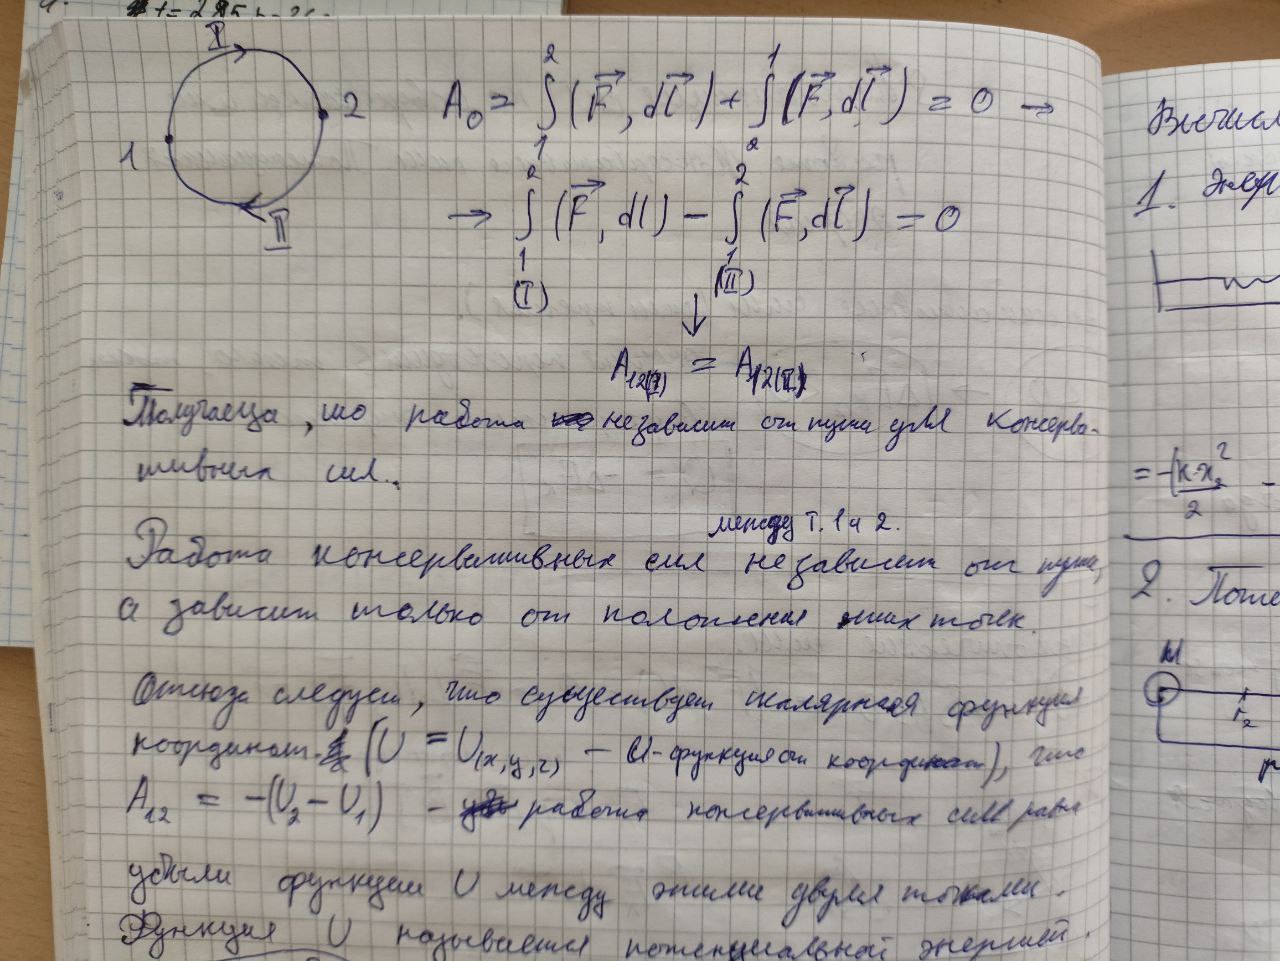 I
2
1
II
A₀ = ∫₁² (F⃗, dl⃗) + ∫₂¹ (F⃗, dl⃗) = 0 →
→ ∫₁² (F⃗, dl) − ∫₁² (F⃗, dl⃗) = 0
(I) (II)
↓
A₁₂₍I₎ = A₁₂₍II₎
Получаеца, шо работа независит от пути для консерва-
тивных сил.
между т. 1 и 2.
Работа консервативных сил независит от пути,
а зависит только от положения этих точек.
Отсюда следует, что существует скалярная функция
координат (U = U(x,y,z) – U-функция от координат), что
A₁₂ = -(U₂ - U₁) - работа консервативных сил равна
убыли функции U между этими двумя точками.
Функция U называется потенциальной энергией.
Вычисл
1. Энер
= -(k·x₂²
2
-
2. Поте
M
r₂